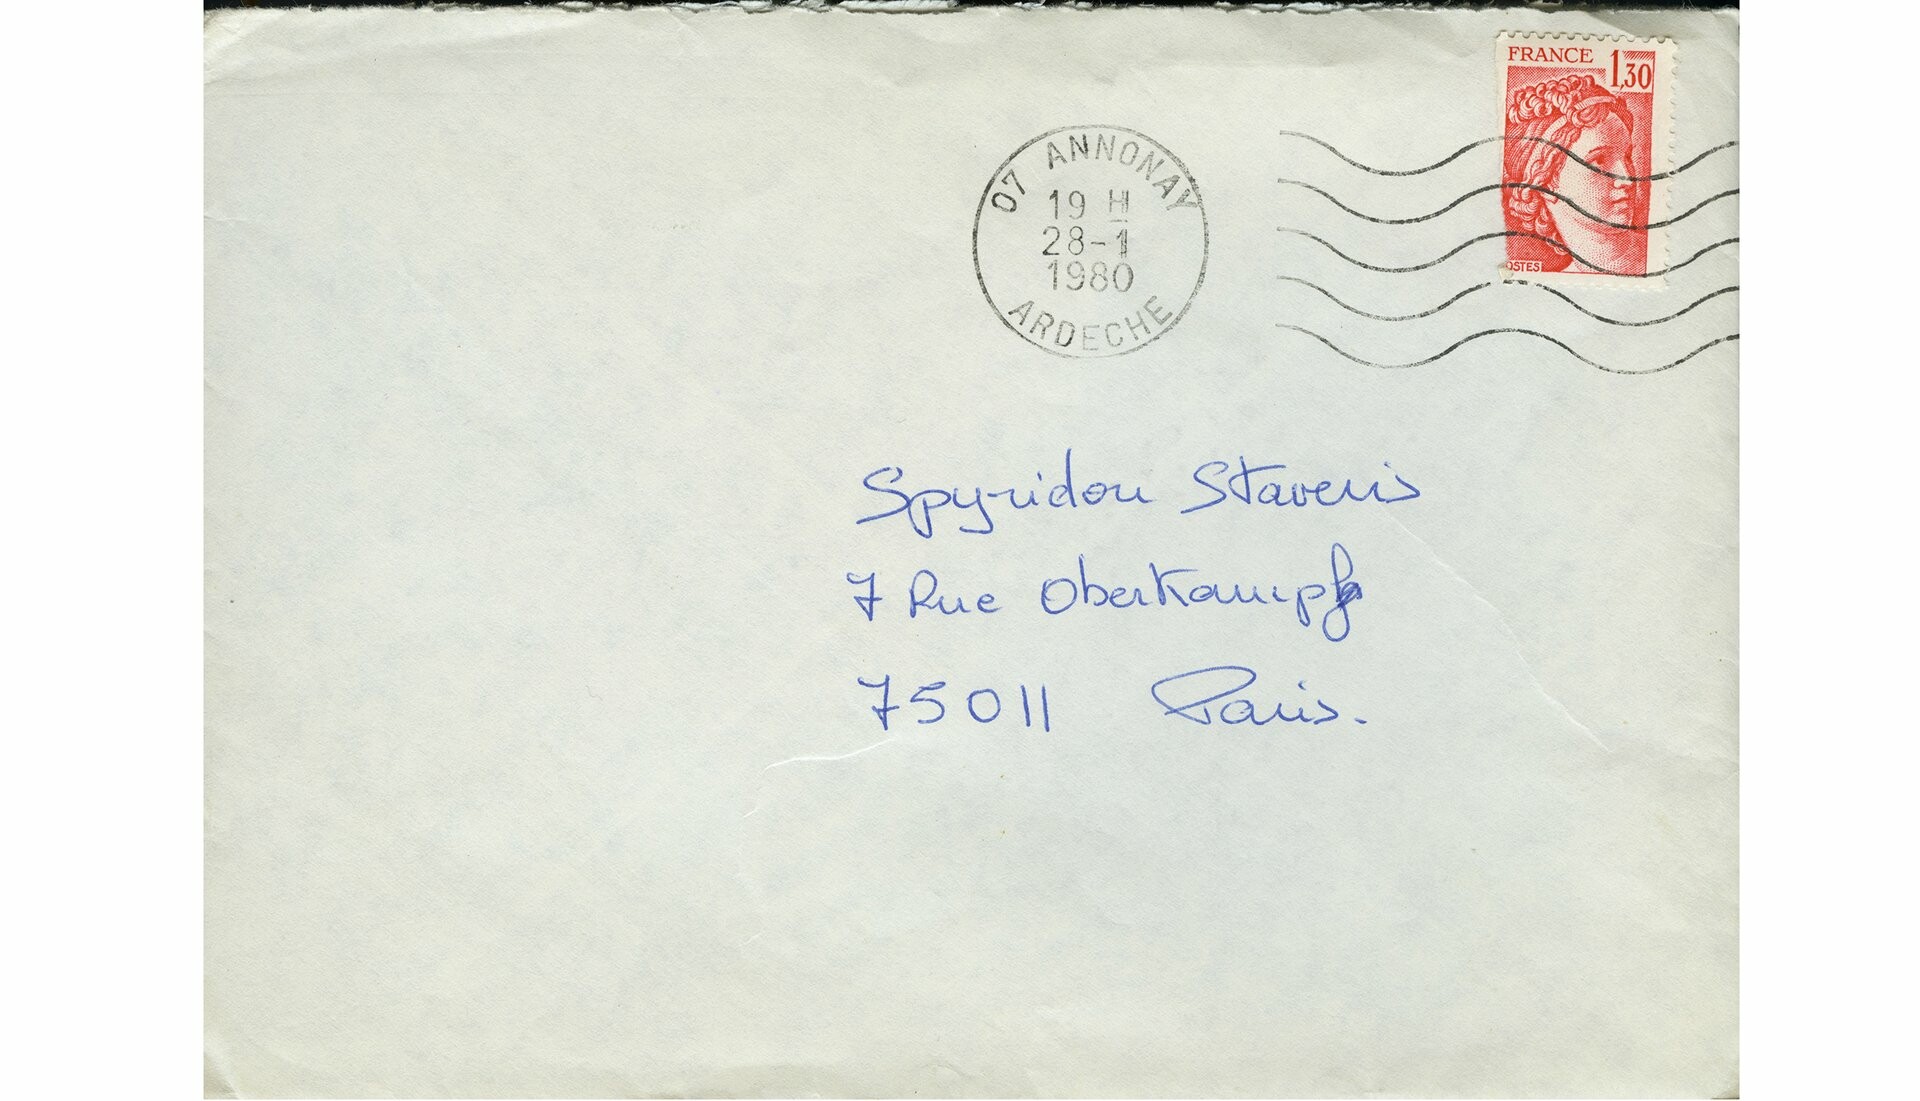 FRANCE 1,30
OSTES
07 ANNONAY
19 H
28-1
1980
ARDECHE
Spyridon Staveris
7 Rue Oberkampf
75011 Paris.